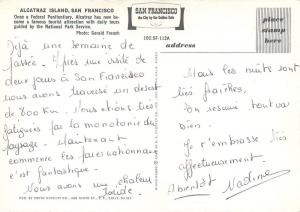 ALCATRAZ ISLAND, SAN FRANCISCO
Once a Federal Penitentiary, Alcatraz has now be-
came a famous tourist attraction with daily tours
guided by the National Park Service.
Photo: Gerald French
SAN FRANCISCO
the City by the Golden Gate
place
stamp
here
address
Déjà une semaine de
passée. Après une visite de
deux jours à San Francisco
nous avons traversé un désert
de 800 Km. Nous étions très
fatigués par la monotonie du
paysage. Maintenant
commence les parcs nationnaux
c'est fantastique.
Nous avons une chaleur
torride.
Mais les nuits sont
très fraîches,
On résume tout va
bien.
Je t'embrasse très
affectueusement.
A bientôt Nadine